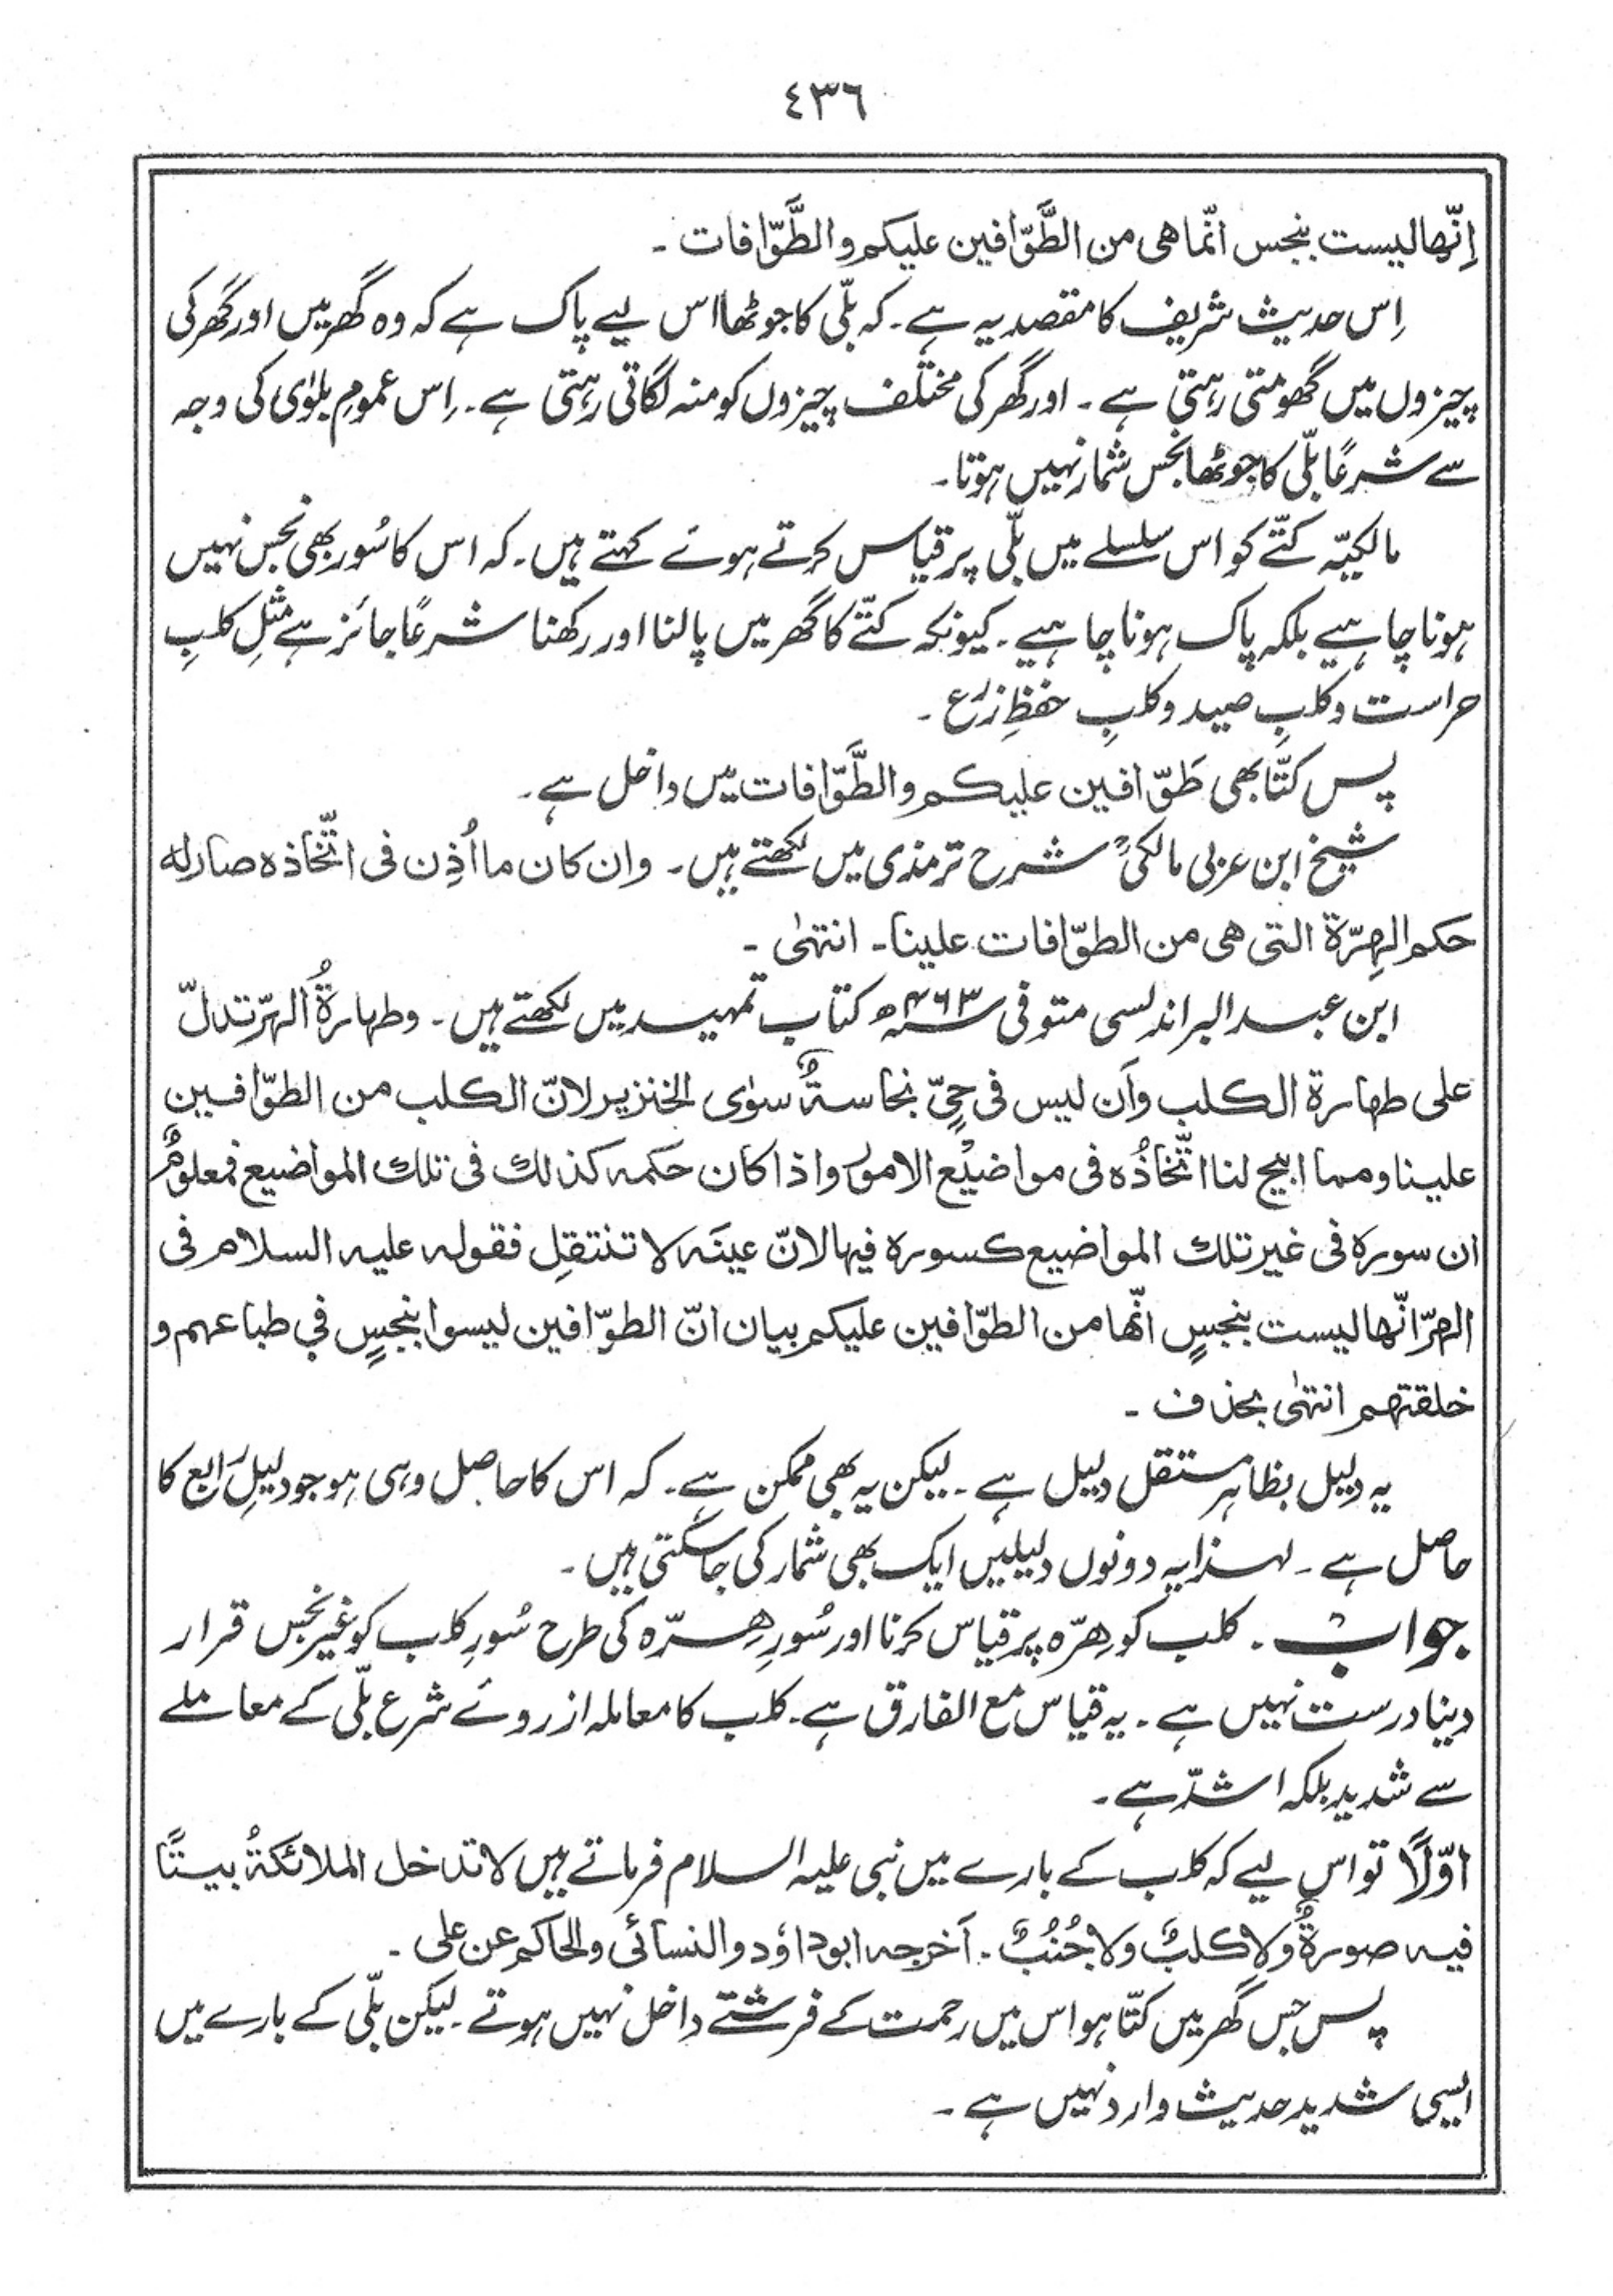 ٤٣٦
اِنّھا لیست بنجس انّما ھی من الطَّوّافین علیکم و الطَّوّافات ۔
اِس حدیث شریف کا مقصد یہ ہے۔ کہ بلّی کا جوٹھا اس لیے پاک ہے کہ وہ گھر میں اور گھر کی
چیزوں میں گھومتی رہتی ہے ۔ اور گھر کی مختلف چیزوں کو منہ لگاتی رہتی ہے۔ اِس عمومِ بلوٰی کی وجہ
سے شرعًا بلّی کا جوٹھا نجس شمار نہیں ہوتا۔
مالکیّہ کتّے کو اس سلسلے میں بلّی پر قیاس کرتے ہوئے کہتے ہیں۔ کہ اس کا سُور بھی نجس نہیں
ہونا چاہیے بلکہ پاک ہونا چاہیے ۔ کیونکہ کتّے کا گھر میں پالنا اور رکھنا شرعًا جائز ہے مثلِ کلبِ
حراست و کلبِ صید و کلبِ حفظِ زرع ۔
پس کتّا بھی طَوّافین علیکم و الطَّوّافات میں داخل ہے۔
شیخ ابن عربی مالکیؒ شرح ترمذی میں لکھتے ہیں۔ وان کان ما اُذِن فی اتّخاذہ صار لہ
حکم الھِرّۃ التی ھی من الطوّافات علینا۔ انتہٰی ۔
ابن عبد البر اندلسی متوفی سنہ ٤٦٣ھ کتاب تمہید میں لکھتے ہیں۔ وطہارۃُ الہرّ تدلّ
علی طہارۃ الکلب واَن لیس فی حیّ نجاسۃٌ سوٰی الخنزیر لانّ الکلب من الطوّافین
علینا ومما ابیح لنا اتّخاذُہ فی مواضیع الامور واذا کان حکمہ کذلک فی تلک المواضیع فمعلومٌ
ان سورہ فی غیر تلک المواضیع کسورہ فیہا لانّ عینَہ لا تنتقِل فقولہ علیہ السلام فی
الھرّ انّھا لیست بنجسٍ انّھا من الطوّافین علیکم بیان انّ الطوّافین لیسوا بنجسٍ فی طباعہم و
خلقتہم انتہٰی بحذف ۔
یہ دلیل بظاہر مستقل دلیل ہے ۔ لیکن یہ بھی ممکن ہے۔ کہ اس کا حاصل وہی ہو جو دلیلِ رابع کا
حاصل ہے ۔ لہٰذا یہ دونوں دلیلیں ایک بھی شمار کی جاسکتی ہیں ۔
جواب ۔ کلب کو ھرّہ پر قیاس کرنا اور سُورِ ھِرّہ کی طرح سُورِ کلب کو غیر نجس قرار
دینا درست نہیں ہے ۔ یہ قیاس مع الفارق ہے۔ کلب کا معاملہ ازروئے شرع بلّی کے معاملے
سے شدید بلکہ اشدّ ہے ۔
اوّلًا تو اس لیے کہ کلب کے بارے میں نبی علیہ السلام فرماتے ہیں لا تدخل الملائکۃُ بیتًا
فیہ صورۃٌ ولا کلبٌ ولا جُنُبٌ ۔ اَخرجہ ابوداؤد والنسائی والحاکم عن علی ۔
پس جس گھر میں کتّا ہو اس میں رحمت کے فرشتے داخل نہیں ہوتے ۔ لیکن بلّی کے بارے میں
ایسی شدید حدیث وارد نہیں ہے ۔